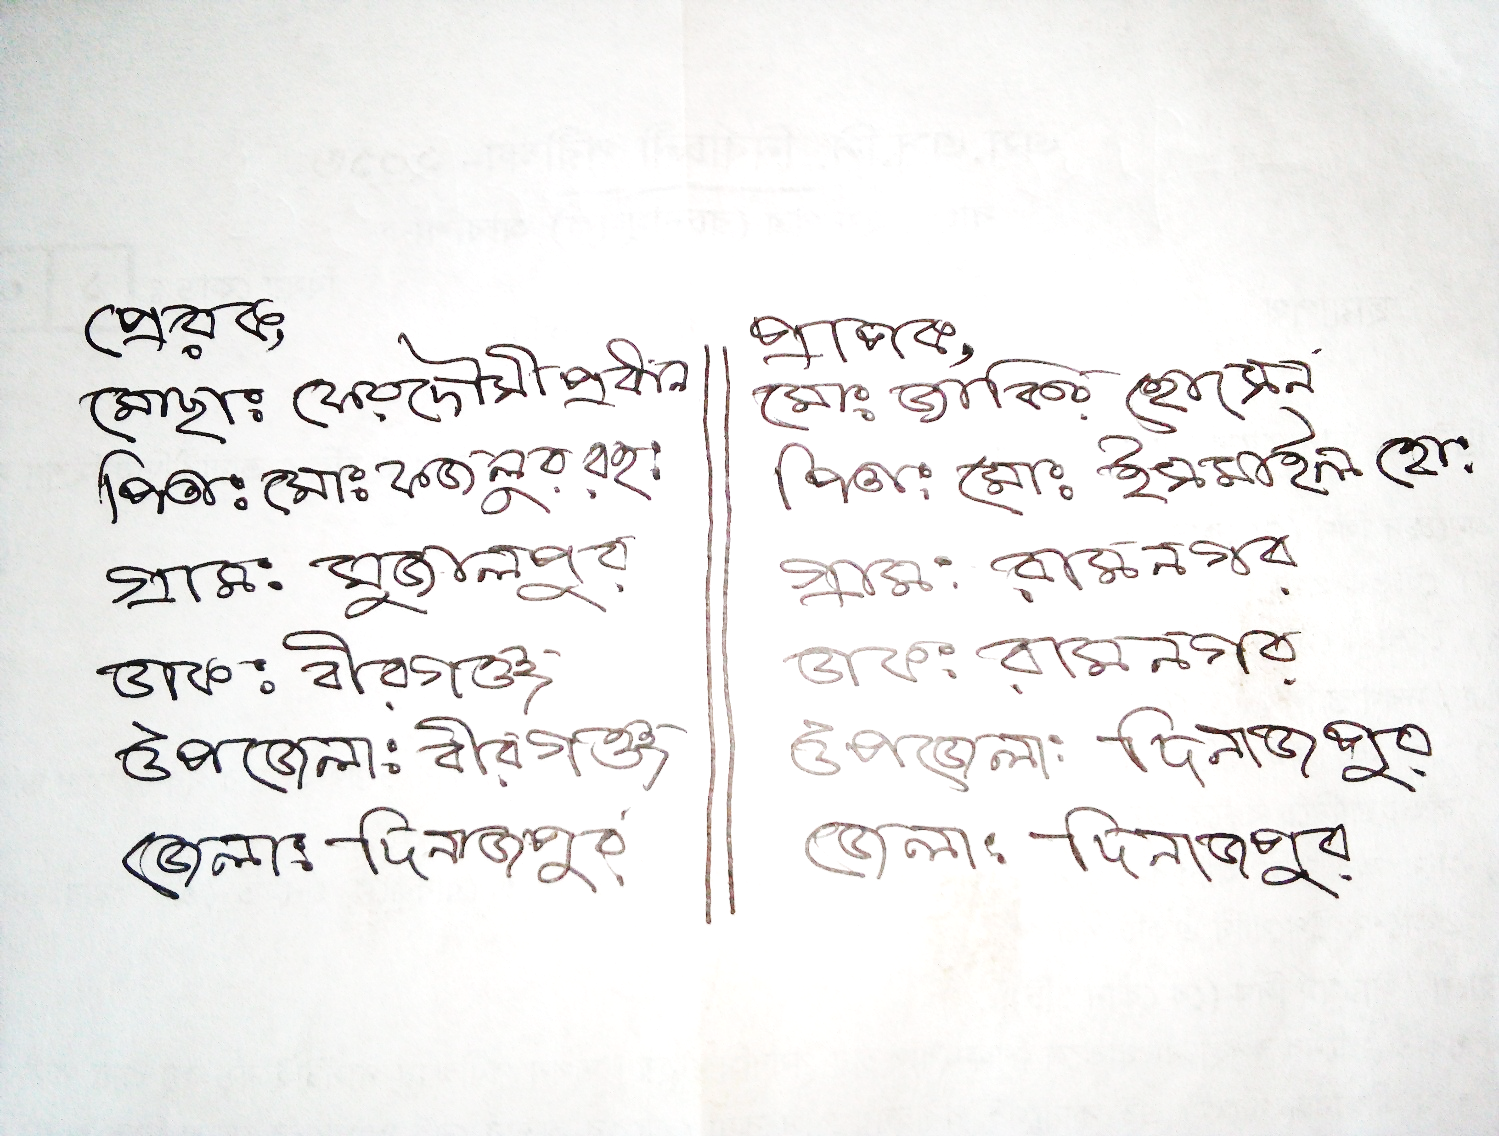 প্রেরক,
মোছাঃ ফেরদৌসী প্রবীন
পিতাঃ মোঃ ফজলুর রহঃ
গ্রামঃ সুজালপুর
ডাকঃ বীরগঞ্জ
উপজেলাঃ বীরগঞ্জ
জেলাঃ দিনাজপুর
প্রাপক,
মোঃ জাকির হোসেন
পিতাঃ মোঃ ইসমাইল হো:
গ্রামঃ রামনগর
ডাকঃ রামনগর
উপজেলা: দিনাজপুর
জেলাঃ দিনাজপুর